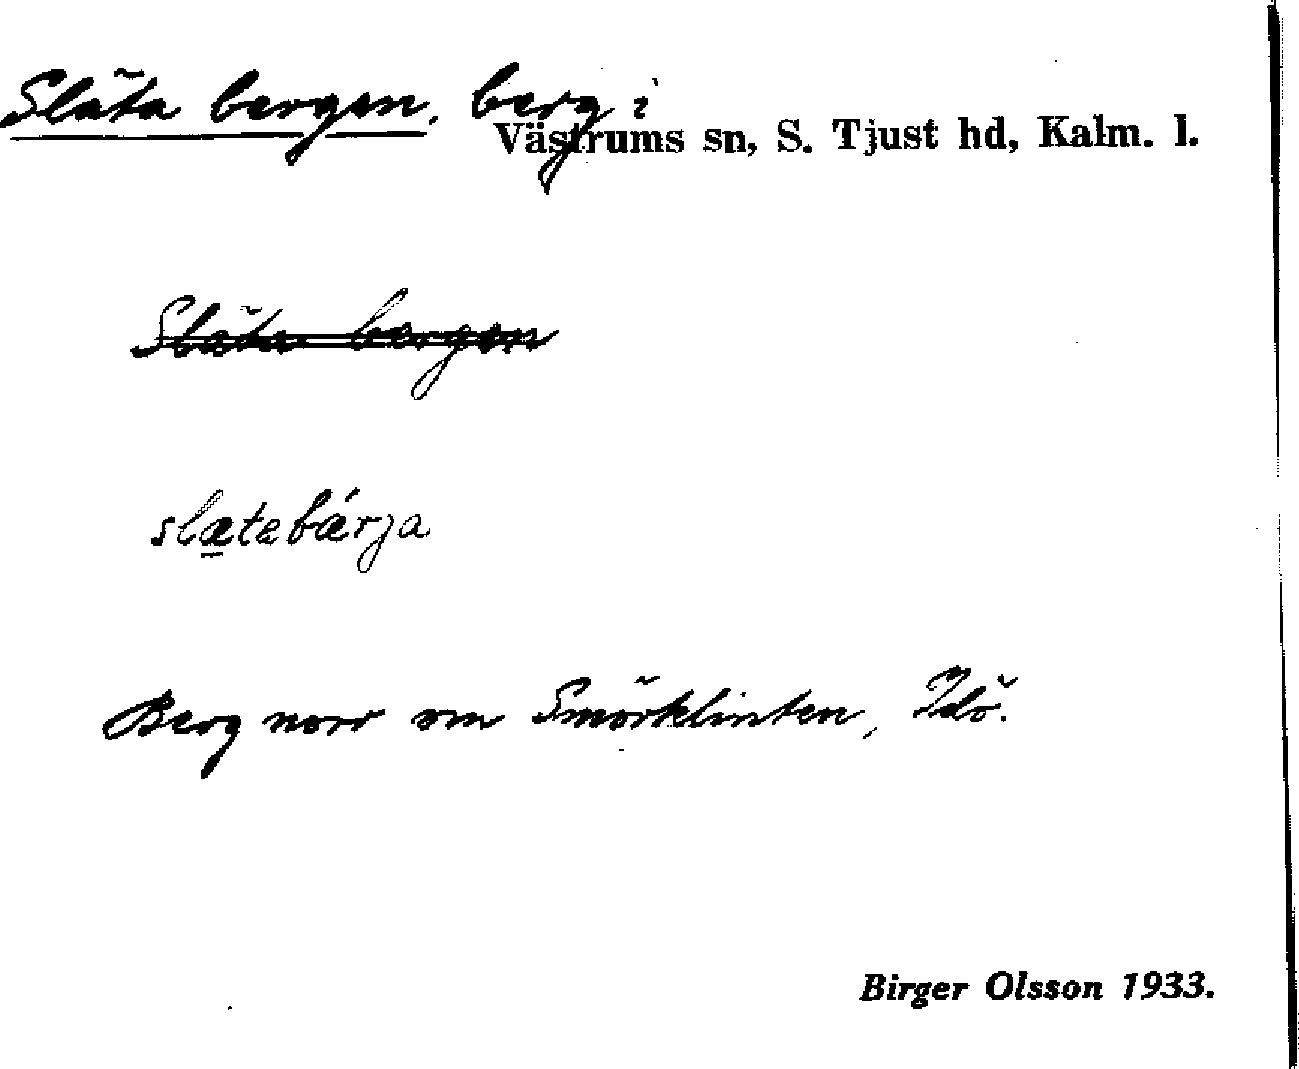 Släta bergen, berg i
Västrums sn, S. Tjust hd, Kalm. l.
Släta bergen
slætebǽrja
Berg norr om Smörklinten, Idö.
Birger Olsson 1933.